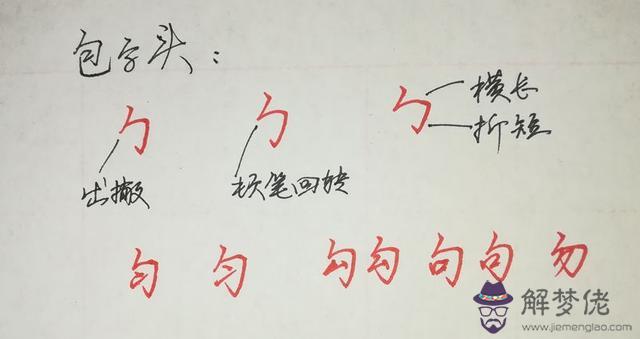 包字头：
勹 勹 勹 横长
折短
出撇 顿笔回转
匀 匀 勾 勾 句 句 勿
解梦佬
www.jiemenglao.com